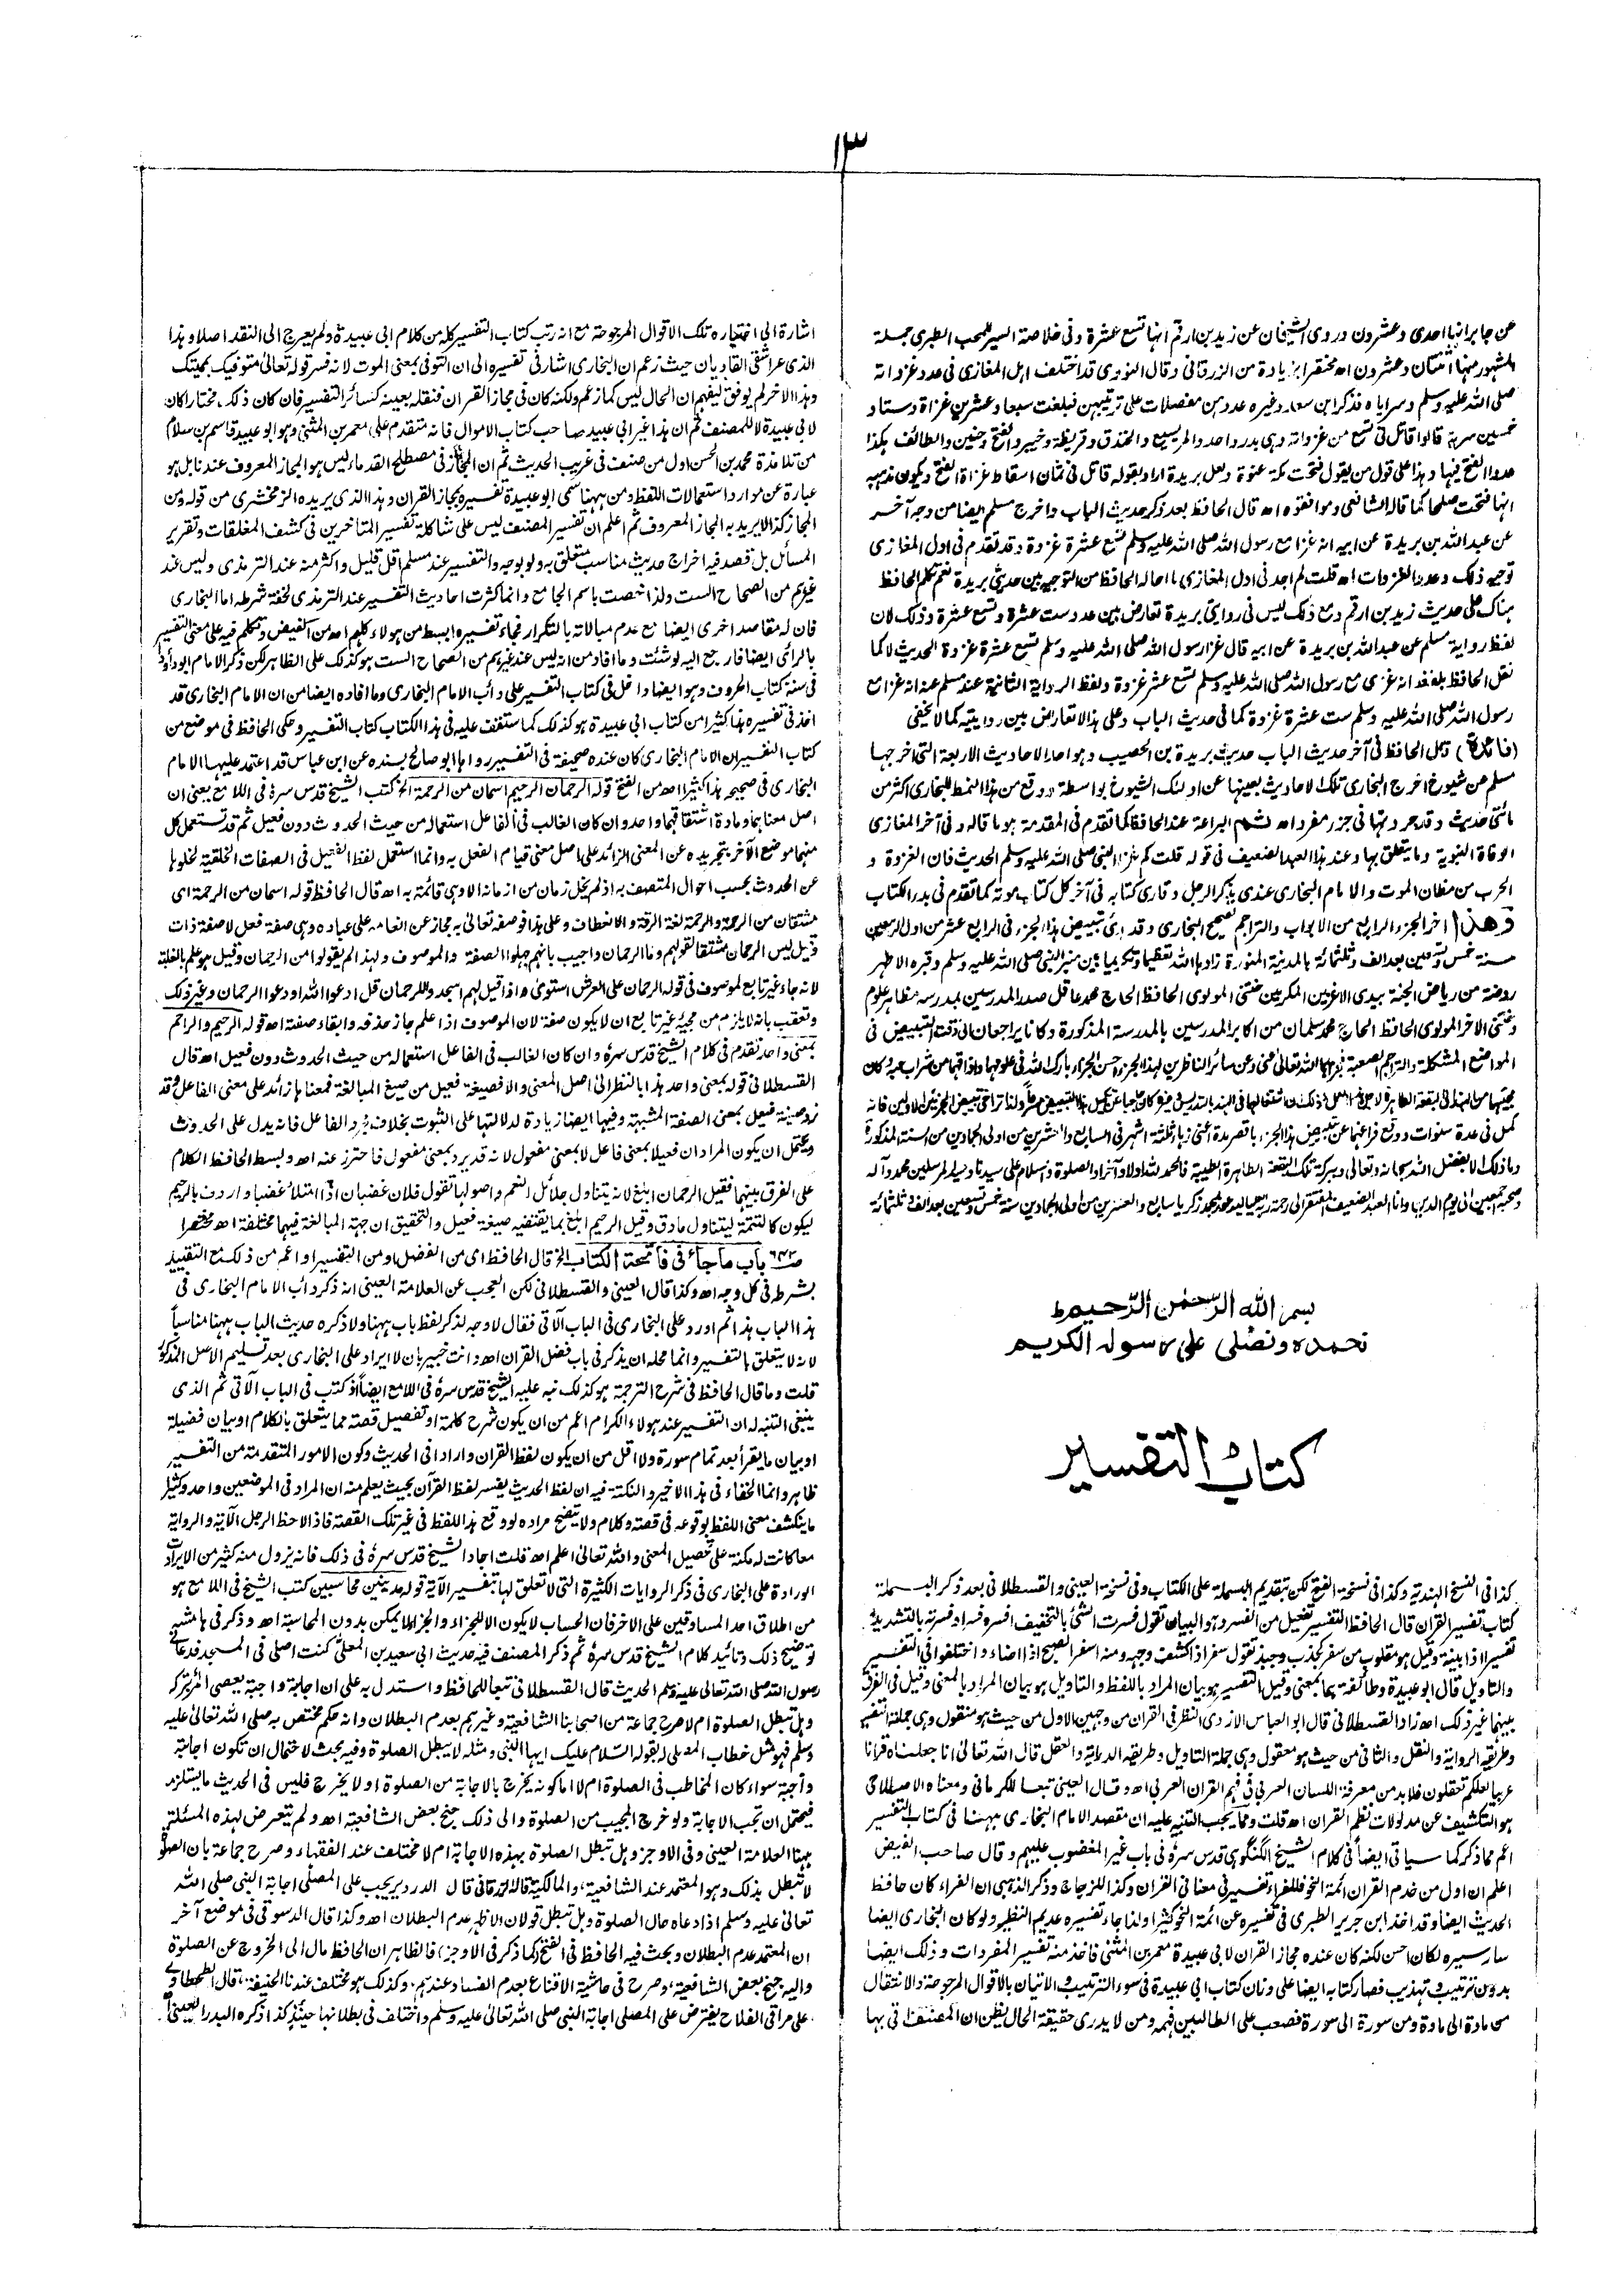 ١٣
عن جابر انها احدى وعشرون وروى الشيخان عن زيد بن ارقم انها تسع عشرة وفى خلاصة السير للمحب الطبرى جملة
المشهور منها اثنتان وعشرون اھ مختصرا بزيادة من الزرقانى وقال النووى قد اختلف اهل المغازى فى عدد غزواته
صلى الله عليه وسلم وسراياه فذكر ابن سعد وغيره عددهن مفصلات على ترتيبهن فبلغت سبعا وعشرين غزاة وستا و
خمسين سرية قالوا قاتل فى تسع من غزواته وهى بدر واحد والمريسيع والخندق وقريظة وخيبر والفتح وحنين والطائف هكذا
عدوا الفتح فيها وهذا على قول من يقول فتحت مكة عنوة ولعل بريدة اراد بقوله قاتل فى ثمان اسقاط غزاة الفتح ويكون مذهبه
انها فتحت صلحا كما قال الشافعى وموافقوه اھ قال الحافظ بعد ذكر حديث الباب واخرج مسلم ايضا من وجه آخر
عن عبد الله بن بريدة عن ابيه انه غزا مع رسول الله صلى الله عليه وسلم تسع عشرة غزوة وقد تقدم فى اول المغازى
توجيه ذلك وعدد الغزوات اھ قلت لم اجد فى اول المغازى ما احاله الحافظ من التوجيه بين حديثى بريدة نعم تكلم الحافظ
هناك على حديث زيد بن ارقم ومع ذلك ليس فى روايتى بريدة تعارض بين عدد ست عشرة وتسع عشرة وذلك لان
لفظ رواية مسلم عن عبد الله بن بريدة عن ابيه قال غزا رسول الله صلى الله عليه وسلم تسع عشرة غزوة الحديث لا كما
نقل الحافظ بلفظ انه غزى مع رسول الله صلى الله عليه وسلم تسع عشر غزوة ولفظ الرواية الثانية عند مسلم عنه انه غزا مع
رسول الله صلى الله عليه وسلم ست عشرة غزوة كما فى حديث الباب وعلى هذا لا تعارض بين روايتيه كما لا يخفى
(فائدة) قال الحافظ فى آخر حديث الباب حديث بريدة بن الحصيب وهو احد الاحاديث الاربعة التى اخرجها
مسلم عن شيوخ اخرج البخارى تلك الاحاديث بعينها عن اولئك الشيوخ بواسطة ووقع من هذا النمط للبخارى اكثر من
مائتى حديث وقد جردتها فى جزء مفرد اھ ثم البراعة عند الحافظ كما تقدم فى المقدمة هو ما قاله وفى آخر المغازى
الوفاة النبوية وما يتعلق بها وعند هذا العبد الضعيف فى قوله قلت كم غزا النبى صلى الله عليه وسلم الحديث فان الغزوة و
الحرب من مظان الموت والامام البخارى عندى يذكر الرجل وقارى كتابه فى آخر كل كتاب موته كما تقدم فى بدء الكتاب
وهذا اخر الجزء الرابع من الابواب والتراجم لصحيح البخارى وقد تم تبييض هذا الجزء فى الرابع عشر من اول الربيعين
سنة خمس وتسعين بعد الف وثلثمائة بالمدينة المنورة زادها الله تعظيما وتكريما بين منبر النبى صلى الله عليه وسلم وقبره الاطهر
روضة من رياض الجنة بيدى الاعزين المكرمين ختنى المولوى الحافظ الحاج محمد عاقل صدر المدرسين بمدرسة مظاهر علوم
وختنى الاخر المولوى الحافظ الحاج محمد سلمان من اكابر المدرسين بالمدرسة المذكورة وكانا يراجعان الى وقت التبييض فى
المواضع المشكلة والتراجم الصعبة فجزاهما الله تعالى عنى وعن سائر الناظرين لهذا الجزء حسن الجزاء بارك الله فى علومهما واذاقهما من شراب حبه وكان
كمل فى عدة سنوات ووقع فراغهما عن تبييض هذا الجزء
وما ذلك الا بفضل الله سبحانه وتعالى وببركة تلك البقعة الطاهرة الطيبة فالحمد لله اولا وآخرا والصلوة والسلام على سيدنا وسيد المرسلين محمد وآله
وصحبه اجمعين الى يوم الدين وانا العبد الضعيف المفتقر الى رحمة ربه
بسم الله الرحمن الرحيم
نحمده ونصلى على رسوله الكريم
كتاب التفسير
كذا فى النسخ الهندية وكذا فى نسخة الفتح لكن بتقديم البسملة على الكتاب وفى نسخة العينى والقسطلانى بعد ذكر البسملة
كتاب تفسير القران قال الحافظ التفسير تفعيل من الفسر وهو البيان تقول فسرت الشئ بالتخفيف افسره فسرا وفسرته بالتشديد
تفسيرا اذا بينته وقيل هو مقلوب من سفر كجذب وجبذ تقول سفر اذا كشف وجهه ومنه اسفر الصبح اذا اضاء واختلفوا فى التفسير
والتاويل قال ابو عبيدة وطائفة هما بمعنى وقيل التفسير هو بيان المراد باللفظ والتاويل هو بيان المراد بالمعنى وقيل فى الفرق
بينهما غير ذلك اھ زاد القسطلانى قال ابو العباس الازدى النظر فى القران من وجهين الاول من حيث هو منقول وهى جملة التفسير
وطريقه الرواية والنقل والثانى من حيث هو معقول وهى جملة التاويل وطريقه الدراية والعقل قال الله تعالى انا جعلناه قرانا
عربيا لعلكم تعقلون فلا بد من معرفة اللسان العربى فى فهم القران العربى اھ وقال العينى تبعا للكرمانى ومعناه الاصطلاحى
هو التكشيف عن مدلولات نظم القران اھ قلت ومما يجب التنبيه عليه ان مقصد الامام البخارى ههنا فى كتاب التفسير
اعم مما ذكر كما سياتى ايضاً فى كلام الشيخ الگنگوهى قدس سرهٗ فى باب غير المغضوب عليهم وقال صاحب الفيض
اعلم ان اول من خدم القران ائمة النحو فللفراء تفسير فى معانى القران وكذا للزجاج وذكر الذهبى ان الفراء كان حافظ
الحديث ايضا وقد اخذ ابن جرير الطبرى فى تفسيره عن ائمة النحو كثيرا ولذا جاء تفسيره عديم النظير ولو كان البخارى ايضا
سار سيره لكان احسن لكنه كان عنده مجاز القران لابى عبيدة معمر بن المثنى فاخذ منه تفسير المفردات وذلك ايضا
بدون ترتيب وتهذيب فصار كتابه ايضا على وزان كتاب ابى عبيدة فى سوء الترتيب والاتيان بالاقوال المرجوحة والانتقال
من مادة الى مادة ومن سورة الى سورة فصعب على الطالبين فهمه ومن لا يدرى حقيقة الحال يظن ان المصنف اتى بها
اشارة الى اختياره تلك الاقوال المرجوحة مع انه رتب كتاب التفسير كله من كلام ابى عبيدة ولم يعرج الى النقد اصلا وهذا
الذى عرا شقى القاديان حيث زعم ان البخارى اشار فى تفسيره الى ان التوفى بمعنى الموت لانه فسر قوله تعالى متوفيك بمميتك
وهذا الاخر لم يوفق ليفهم ان الحال ليس كما زعم ولكنه كان فى مجاز القران فنقله بعينه كسائر التفسير فان كان ذلك مختارا كان
لابى عبيدة لا للمصنف ثم ان هذا غير ابى عبيد صاحب كتاب الاموال فانه متقدم على معمر بن المثنى وهو ابو عبيد قاسم بن سلام
من تلامذة محمد بن الحسن اول من صنف فى غريب الحديث ثم ان المجاز فى مصطلح القدماء ليس هو المجاز المعروف عندنا بل هو
عبارة عن موارد استعمالات اللفظ ومن ههنا سمى ابو عبيدة تفسيره بمجاز القران وهذا الذى يريده الزمخشرى من قوله ومن
المجاز كذا لا يريد به المجاز المعروف ثم اعلم ان تفسير المصنف ليس على شاكلة تفسير المتاخرين فى كشف المغلقات وتقرير
المسائل بل قصد فيه اخراج حديث مناسب متعلق به ولو بوجه والتفسير عند مسلم اقل قليل واكثر منه عند الترمذى وليس عند
غيرهم من الصحاح الست ولذا خصت باسم الجامع وانما كثرت احاديث التفسير عند الترمذى لخفة شرطه اما البخارى
فان له مقاصد اخرى ايضا مع عدم مبالاته بالتكرار فجاء تفسيره ابسط من هولاء كلهم اھ من الفيض وتكلم فيه على معنى التفسير
بالرأى ايضا فارجع اليه لو شئت وما افاد من انه ليس عند غيرهم من الصحاح الست هو كذلك على الظاهر لكن ذكر الامام ابو داؤد
فى سننه كتاب الحروف وهو ايضا داخل فى كتاب التفسير على دأب الامام البخارى وما افاده ايضا من ان الامام البخارى قد
اخذ فى تفسيره هذا كثيرا من كتاب ابى عبيدة هو كذلك كما ستقف عليه فى هذا الكتاب كتاب التفسير وحكى الحافظ فى موضع من
كتاب التفسير ان الامام البخارى كان عنده صحيفة فى التفسير رواها ابو صالح بسنده عن ابن عباس قد اعتمد عليها الامام
البخارى فى صحيحه هذا كثيرا اھ من الفتح قوله الرحمان الرحيم اسمان من الرحمة الخ كتب الشيخ قدس سرهٗ فى اللامع يعنى ان
اصل معناهما ومادة اشتقاقهما واحد وان كان الغالب فى الفاعل استعماله من حيث الحدوث دون فعيل ثم قد تستعمل كل
منهما موضع الآخر بتجريده عن المعنى الزائد على اصل معنى قيام الفعل به وانما استعمل لفظ الفعيل فى الصفات الخلقية لخلوها
عن الحدوث بحسب احوال المتصف به اذ لم يخل زمان من ازمانه الا وهى قائمة به اھ قال الحافظ قوله اسمان من الرحمة اى
مشتقان من الرحمة والرحمة لغة الرقة والانعطاف وعلى هذا فوصفه تعالى به مجاز عن انعامه على عباده وهى صفة فعل لا صفة ذات
وقيل ليس الرحمان مشتقا لقولهم وما الرحمان واجيب بانهم جهلوا الصفة والموصوف ولهذا لم يقولوا من الرحمان وقيل هو علم بالغلبة
لانه جاء غير تابع لموصوف فى قوله الرحمان على العرش استوى واذا قيل لهم اسجدوا للرحمان قل ادعوا الله او ادعوا الرحمان وغير ذلك
وتعقب بانه لا يلزم من مجيئه غير تابع ان لا يكون صفة لان الموصوف اذا علم جاز حذفه وابقاء صفته اھ قوله الرحيم والراحم
بمعنى واحد تقدم فى كلام الشيخ قدس سرهٗ وان كان الغالب فى الفاعل استعماله من حيث الحدوث دون فعيل اھ قال
القسطلانى قوله بمعنى واحد هذا بالنظر الى اصل المعنى والا فصيغة فعيل من صيغ المبالغة فمعناها زائد على معنى الفاعل وقد
ترد صيغة فعيل بمعنى الصفة المشبهة وفيها ايضا زيادة لدلالتها على الثبوت بخلاف مجرد الفاعل فانه يدل على الحدوث
ويحتمل ان يكون المراد ان فعيلا بمعنى فاعل لا بمعنى مفعول لانه قد يرد بمعنى مفعول فاحترز عنه اھ وبسط الحافظ الكلام
على الفرق بينهما فقيل الرحمان ابلغ لانه يتناول جلائل النعم واصولها تقول فلان غضبان اذا امتلأ غضبا واردف بالرحيم
ليكون كالتتمة ليتناول ما دق وقيل الرحيم ابلغ بما يقتضيه صيغة فعيل والتحقيق ان جهة المبالغة فيهما مختلفة اھ مختصرا
ص٦٤٢ باب ما جاء فى فاتحة الكتاب الخ قال الحافظ اى من الفضل او من التفسير او اعم من ذلك مع التقييد
بشرطه فى كل وجه اھ وكذا قال العينى والقسطلانى لكن العجب عن العلامة العينى انه ذكر دأب الامام البخارى فى
هذا الباب هذا ثم اورد على البخارى فى الباب الآتى فقال لا وجه لذكر لفظ باب ههنا ولا ذكره حديث الباب ههنا مناسباً
لانه لا يتعلق بالتفسير وانما محله ان يذكر فى باب فضل القران اھ وانت خبير بان لا ايراد على البخارى بعد تسليم الاصل المذكور
قلت وما قال الحافظ فى شرح الترجمة هو كذلك نبه عليه الشيخ قدس سرهٗ فى اللامع ايضاً اذ كتب فى الباب الآتى ثم الذى
ينبغى التنبه له ان التفسير عند هولاء الكرام اعم من ان يكون شرح كلمة او تفصيل قصة مما يتعلق بالكلام او بيان فضيلة
او بيان ما يقرأ بعد تمام سورة ولا اقل من ان يكون لفظ القران وارادا فى الحديث وكون الامور المتقدمة من التفسير
ظاهر وانما الخفاء فى هذا الاخير والنكتة فيه ان لفظ الحديث يفسر لفظ القرآن بحيث يعلم منه ان المراد فى الموضعين واحد وكثيرا
ما ينكشف معنى اللفظ بوقوعه فى قصة وكلام ولا يتضح مراده لو وقع هذا اللفظ فى غير تلك القصة فاذا لاحظ الرجل الآية والرواية
معا كانت له مكنة على تحصيل المعنى والله تعالى اعلم اھ قلت اجاد الشيخ قدس سرهٗ فى ذلك فانه يزول منه كثير من الايرادات
الواردة على البخارى فى ذكر الروايات الكثيرة التى لا تعلق لها بتفسير الآية قوله مدينين محاسبين كتب الشيخ فى اللامع هو
من اطلاق احد المساوقين على الاخر فان الحساب لا يكون الا للجزاء والجزاء لا يمكن بدون المحاسبة اھ وذكر فى هامشه
توضيح ذلك وتائيد كلام الشيخ قدس سرهٗ ثم ذكر المصنف فيه حديث ابى سعيد بن المعلى كنت اصلى فى المسجد فدعانى
رسول الله صلى الله تعالى عليه وسلم الحديث قال القسطلانى تبعا للحافظ واستدل به على ان اجابته واجبة يعصى المرء بتركه
وهل تبطل الصلوة ام لا صرح جماعة من اصحابنا الشافعية وغيرهم بعدم البطلان وانه حكم مختص به صلى الله تعالى عليه
وسلم فهو مثل خطاب المصلى له بقوله السّلام عليك ايها النبى ومثله لا يبطل الصلوة وفيه بحث لاحتمال ان تكون اجابته
واجبة سواء كان المخاطب فى الصلوة ام لا اما كونه يخرج بالاجابة من الصلوة او لا يخرج فليس فى الحديث ما يستلزمه
فيحتمل ان تجب الاجابة ولو خرج المجيب من الصلوة والى ذلك جنح بعض الشافعية اھ ولم يتعرض لهذه المسئلة
ههنا العلامة العينى وفى الاوجز وهل تبطل الصلوة بهذه الاجابة ام لا مختلف عند الفقهاء وصرح جماعة بان الصلوة
لا تبطل بذلك وهو المعتمد عند الشافعية، والمالكية قاله الزرقانى قال الدردير يجب على المصلى اجابة النبى صلى الله
تعالى عليه وسلم اذا دعاه حال الصلوة وهل تبطل قولان الاظهر عدم البطلان اھ وكذا قال الدسوقى فى موضع آخر
ان المعتمد عدم البطلان وبحث فيه الحافظ فى الفتح (كما ذكر فى الاوجز) فالظاهر ان الحافظ مال الى الخروج عن الصلوة
واليه جنح بعض الشافعية، وصرح فى حاشية الاقناع بعدم الفساد عندهم، وكذلك هو مختلف عندنا الحنفية، قال الطحطاوى
على مراقى الفلاح يفترض على المصلى اجابة النبى صلى الله تعالى عليه وسلم واختلف فى بطلانها حينئذٍ كذا ذكره البدر العينى